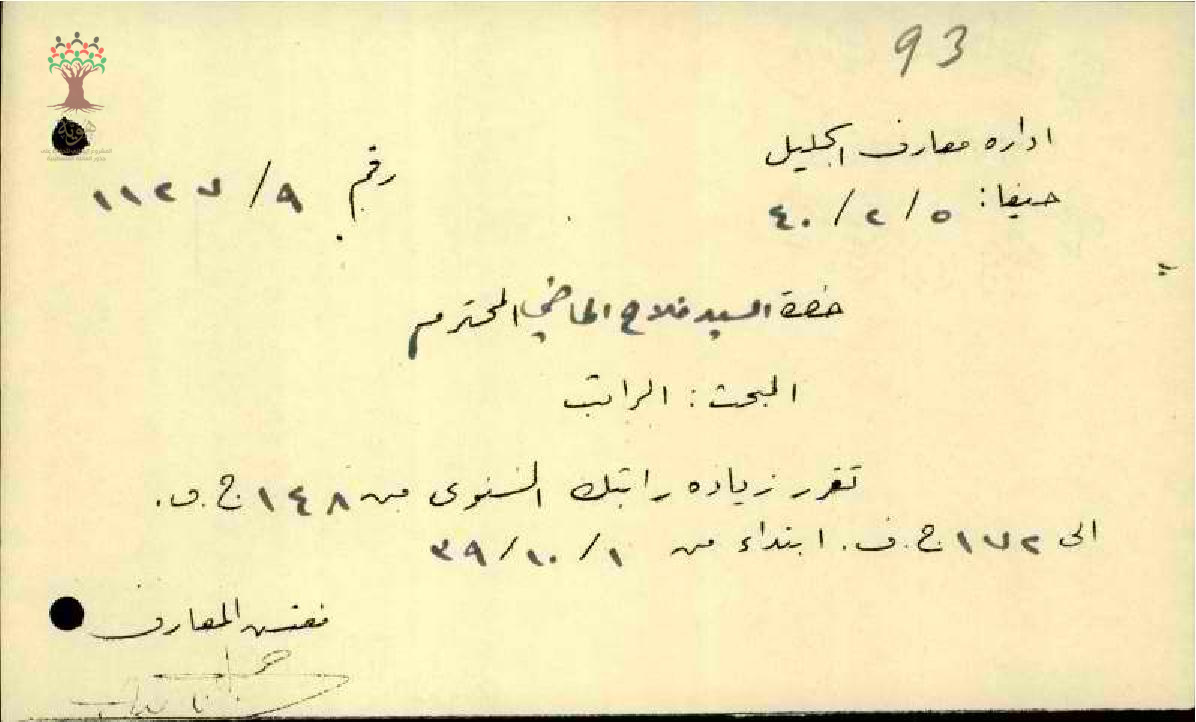 93
اداره معارف الجليل
رقم ٩/١١٢٧
حيفا: ٥/٢/٤٠
حضرة السيد فلاح الماضي المحترم
المبحث: الراتب
تقرر زياده راتبك السنوى من ١٤٨ ج.ف.
الى ١٧٢ ج.ف. ابتداء من ١/١٠/٣٩
مفتش المعارف
هوية